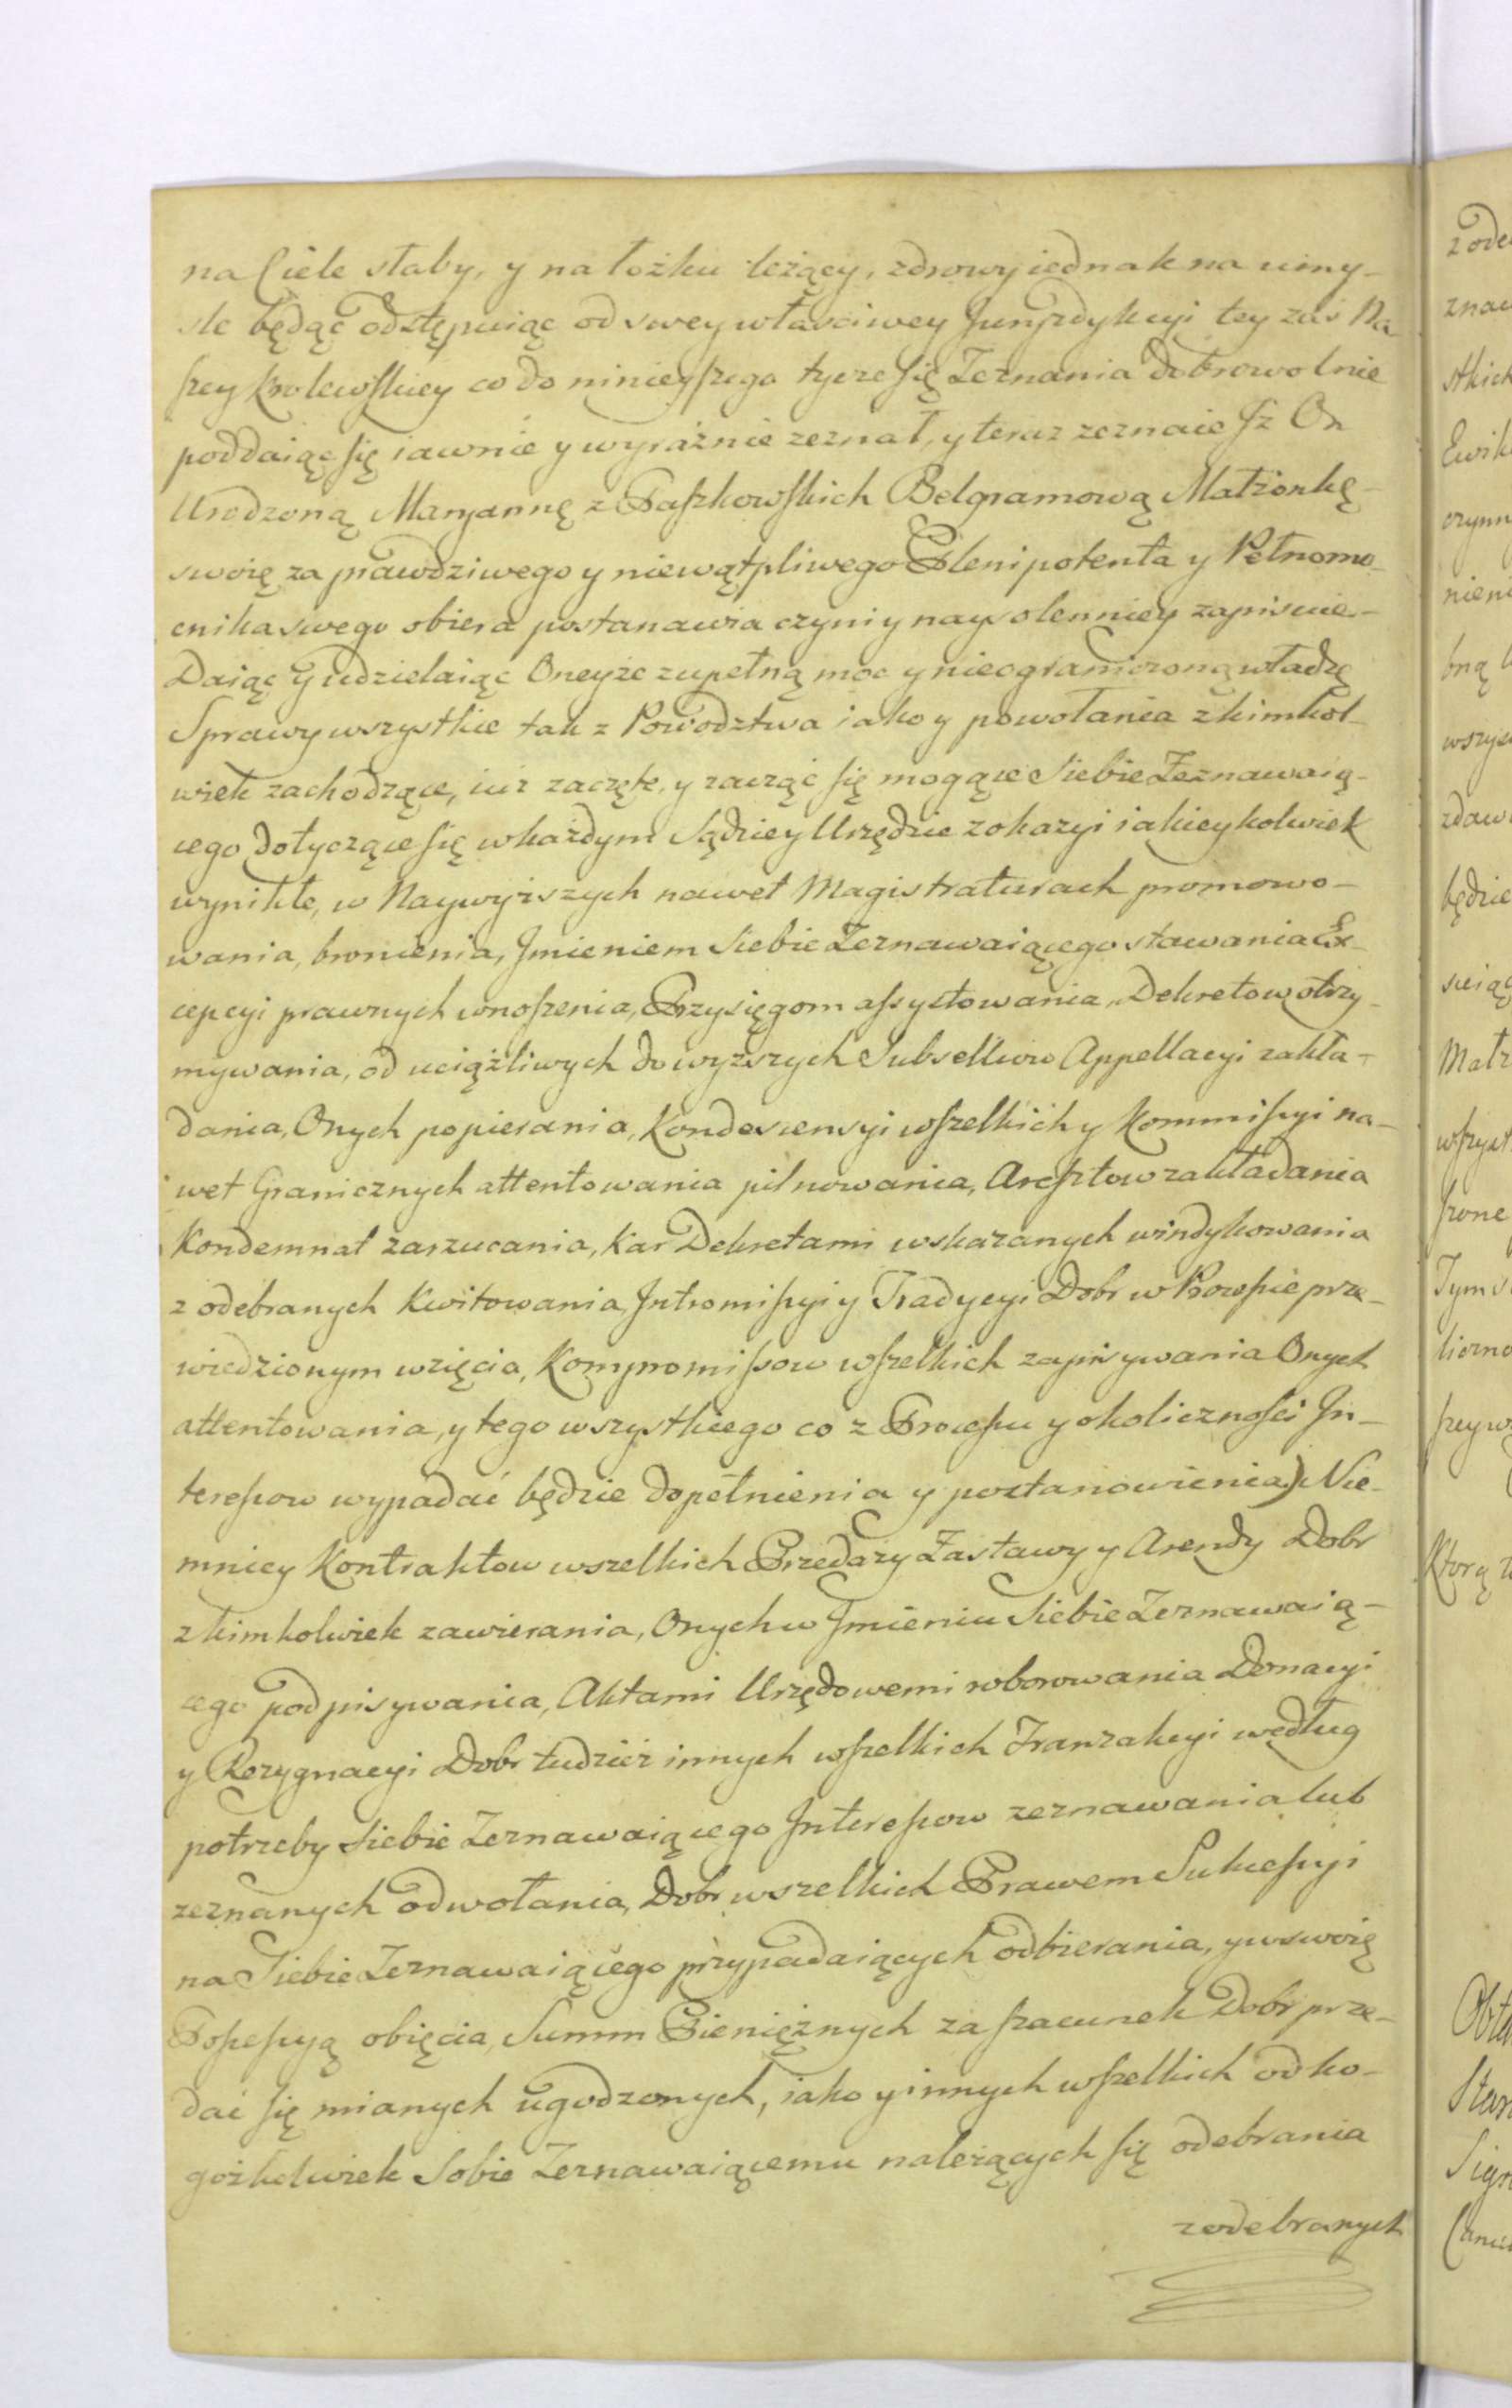 na Ciele słaby, y na łożku leżący, zdrowy iednak na umy-
sle będąc odstępuiąc od swey własciwey Juryzdykcyi tey zas Na
szey Krolewskiey co do ninieyszego tycze się Zeznania dobrowolnie
poddaiąc się iawnie y wyraźnie zeznał, y teraz zeznaie Jż On
Urodzoną Maryannę z Paszkowskich Belgramową Małżonkę
swoię za prawdziwego y niewątpliwego Plenipotenta y Pełnomo-
cnika swego obiera postanawia czyni y naysolenniey zapisuie-
Daiąc y udzielaiąc Oneyże zupełną moc y nieograniczoną władzę
Sprawy wszystkie tak z Powodztwa iako y powołania z kimkol-
wiek zachodzące, iuż zaczęte, y zacząć się mogące Siebie Zeznawaią-
cego dotyczące się w każdym Sądzie y Urzędzie z okazyi iakieykolwiek
wynikłe, w Naywyższych nawet Magistraturach promowo-
wania, bronienia, Jmieniem Siebie Zeznawaiącego stawania Ex-
cepcyi prawnych wnoszenia, Przysięgom assystowania, Dekretow otrzy-
mywania, od uciążliwych do wyższych Subselliow Appellacyi zakła-
dania, Onych popierania, Kondescensyi wszelkich y Kommissyi na-
wet Granicznych attentowania pilnowania, Aresztow zakładania
Kondemnat zarzucania, Kar Dekretami wskazanych windykowania
z odebranych Kwitowania, Jntromissyi y Tradycyi Dobr w Processie prze-
wiedzionym wzięcia, Kompromissow wszelkich zapisywania Onych
attentowania, y tego wszystkiego co z Processu y okoliczności Jn-
teressow wypadać będzie dopełnienia y postanowienia) Nie-
mniey Kontraktow wszelkich Przedaży Zastawy y Arendy Dobr
z kimkolwiek zawierania, Onych w Jmieniu Siebie Zeznawaią-
cego podpisywania, Aktami Urzędowemi roborowania Donacyi
y Rezygnacyi Dobr tudzież innych wszelkich Tranzakcyi według
potrzeby Siebie Zeznawaiącego Jnteressow zeznawania lub
zeznanych odwołania, Dobr wszelkich Prawem Sukcessyi
na Siebie Zeznawaiącego przypadaiących odbierania, y w swoię
Possessyą obięcia, Summ Pieniężnych za szacunek Dobr prze-
dać się mianych ugodzonych, iako y innych wszelkich od ko-
gożkolwiek Sobie Zeznawaiącemu należących się odebrania
z odebranych